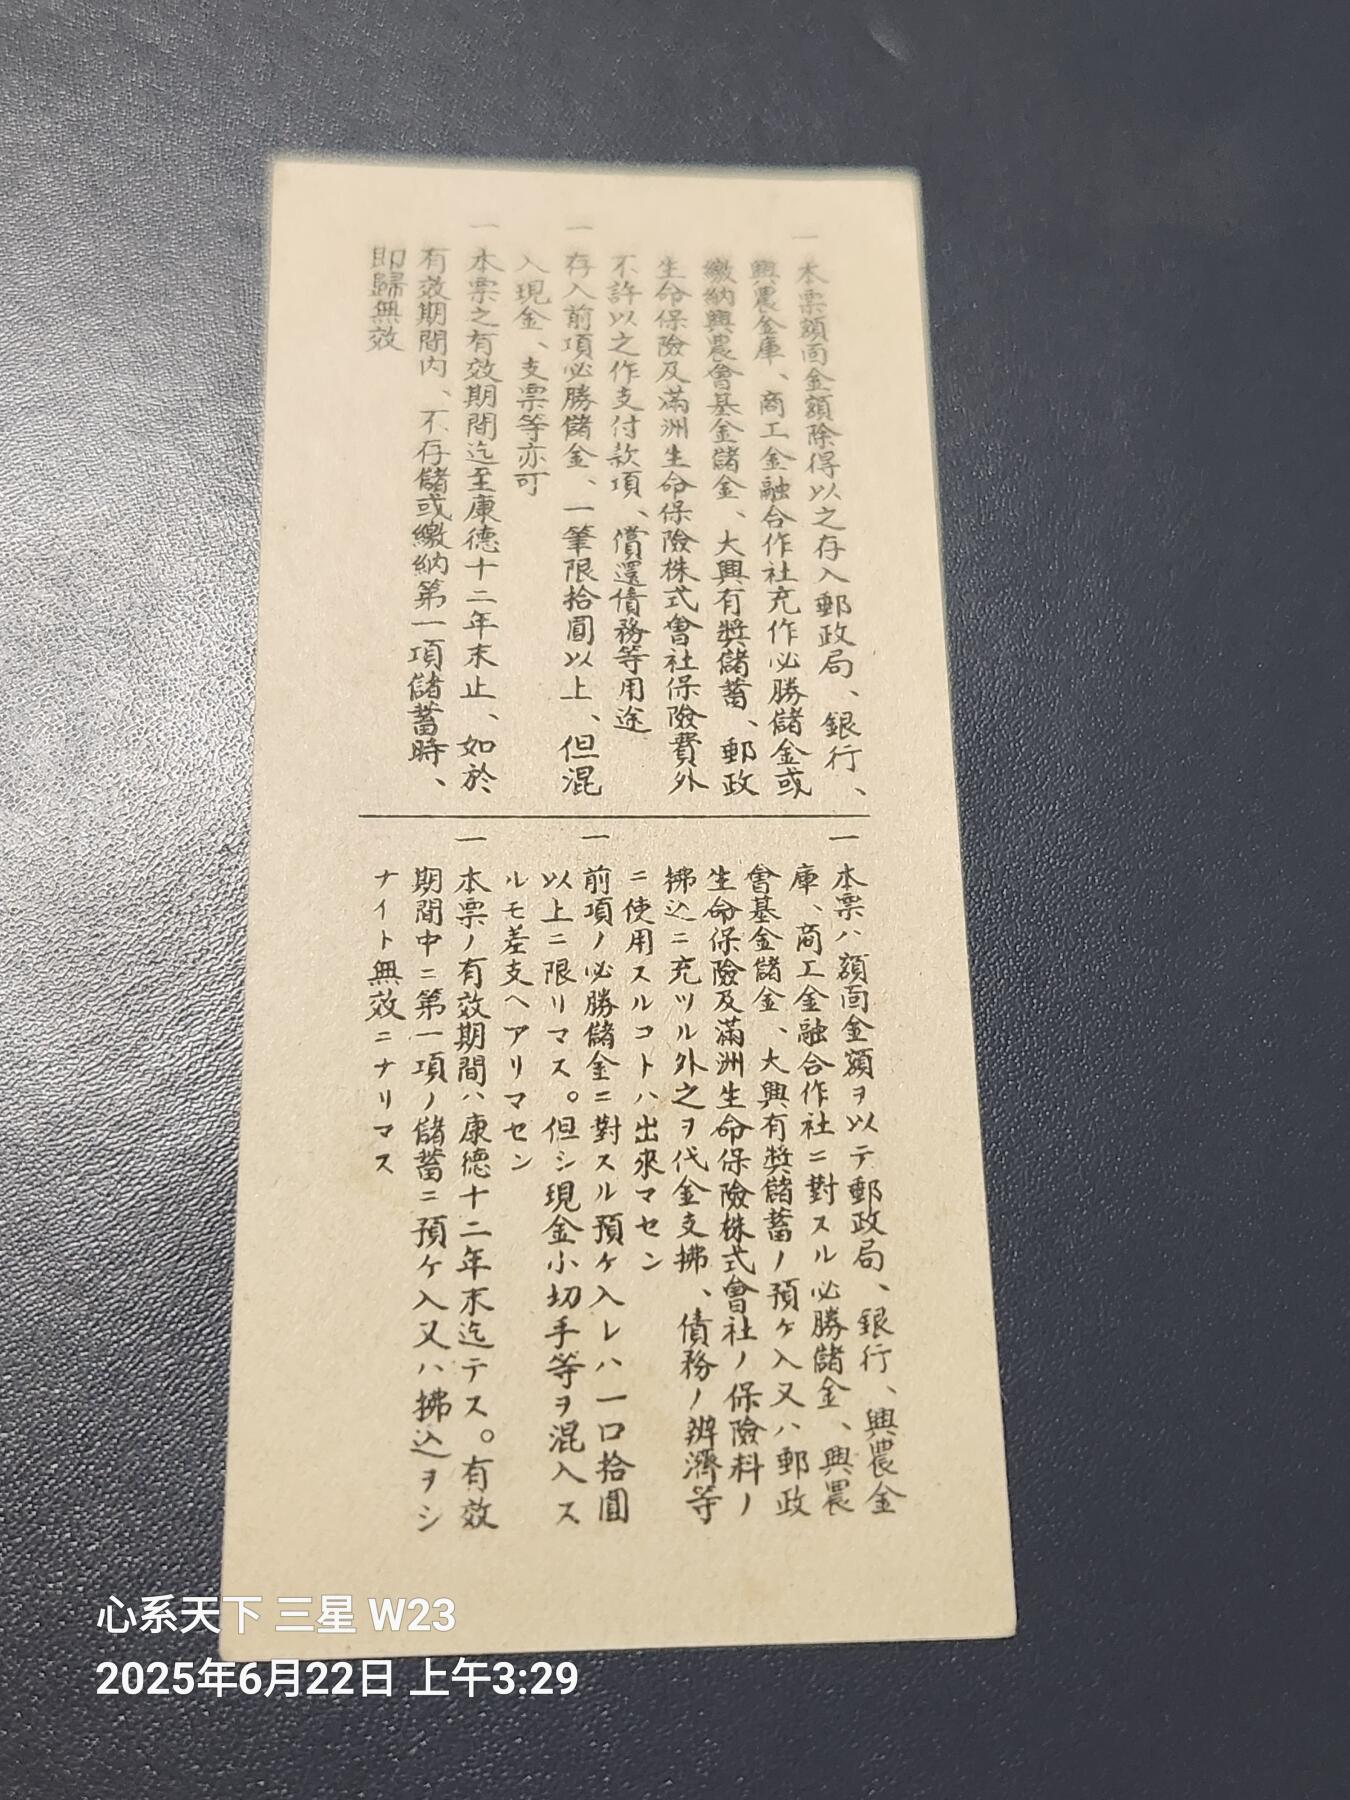 一 本票額面金額除得以之存入郵政局、銀行、
興農金庫、商工金融合作社充作必勝儲金或
繳納興農會基金儲金、大興有獎儲蓄、郵政
生命保險及滿洲生命保險株式會社保險費外
不許以之作支付款項、償還債務等用途
一 存入前項必勝儲金、一筆限拾圓以上、但混
入現金、支票等亦可
一 本票之有效期間迄至康德十二年末止、如於
有效期間内、不存儲或繳納第一項儲蓄時、
即歸無效
一 本票ハ額面金額ヲ以テ郵政局、銀行、興農金
庫、商工金融合作社ニ對スル必勝儲金、興農
會基金儲金、大興有獎儲蓄ノ預ケ入又ハ郵政
生命保險及滿洲生命保險株式會社ノ保險料ノ
拂込ニ充ツル外之ヲ代金支拂、債務ノ辨濟等
ニ使用スルコトハ出來マセン
一 前項ノ必勝儲金ニ對スル預ケ入レハ一口拾圓
以上ニ限リマス。但シ現金小切手等ヲ混入ス
ルモ差支ヘアリマセン
一 本票ノ有效期間ハ康德十二年末迄テス。有效
期間中ニ第一項ノ儲蓄ニ預ケ入又ハ拂込ヲシ
ナイト無效ニナリマス
心系天下 三星 W23
2025年6月22日 上午3:29